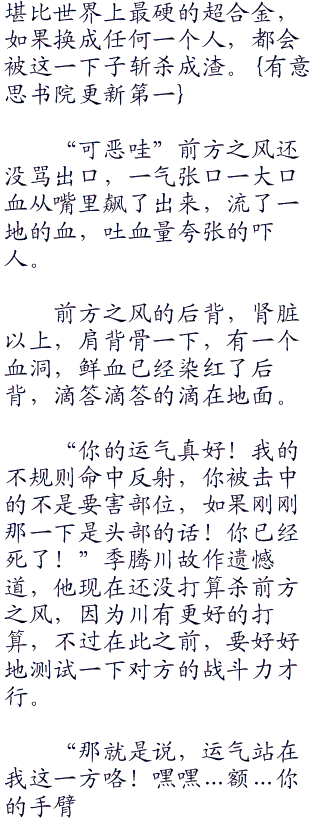 堪比世界上最硬的超合金，
如果换成任何一个人，都会
被这一下子斩杀成渣。{有意
思书院更新第一}
“可恶哇”前方之风还
没骂出口，一气张口一大口
血从嘴里飙了出来，流了一
地的血，吐血量夸张的吓
人。
前方之风的后背，肾脏
以上，肩背骨一下，有一个
血洞，鲜血已经染红了后
背，滴答滴答的滴在地面。
“你的运气真好！我的
不规则命中反射，你被击中
的不是要害部位，如果刚刚
那一下是头部的话！你已经
死了！”季腾川故作遗憾
道，他现在还没打算杀前方
之风，因为川有更好的打
算，不过在此之前，要好好
地测试一下对方的战斗力才
行。
“那就是说，运气站在
我这一方咯！嘿嘿…额…你
的手臂